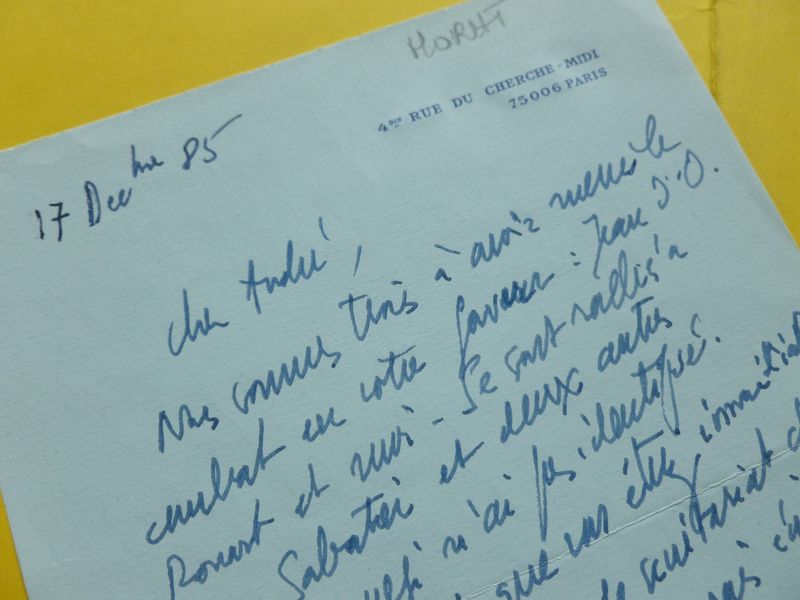 4BIS RUE DU CHERCHE-MIDI
75006 PARIS
17 Decbre 85
cher André,
Nous sommes trois à avoir menés le
combat en votre faveur : Jean d'O.
Rouart et moi - Se sont ralliés à
Sabatier et deux autres
n'ai pas identifié.
que vous étiez
secrétariat